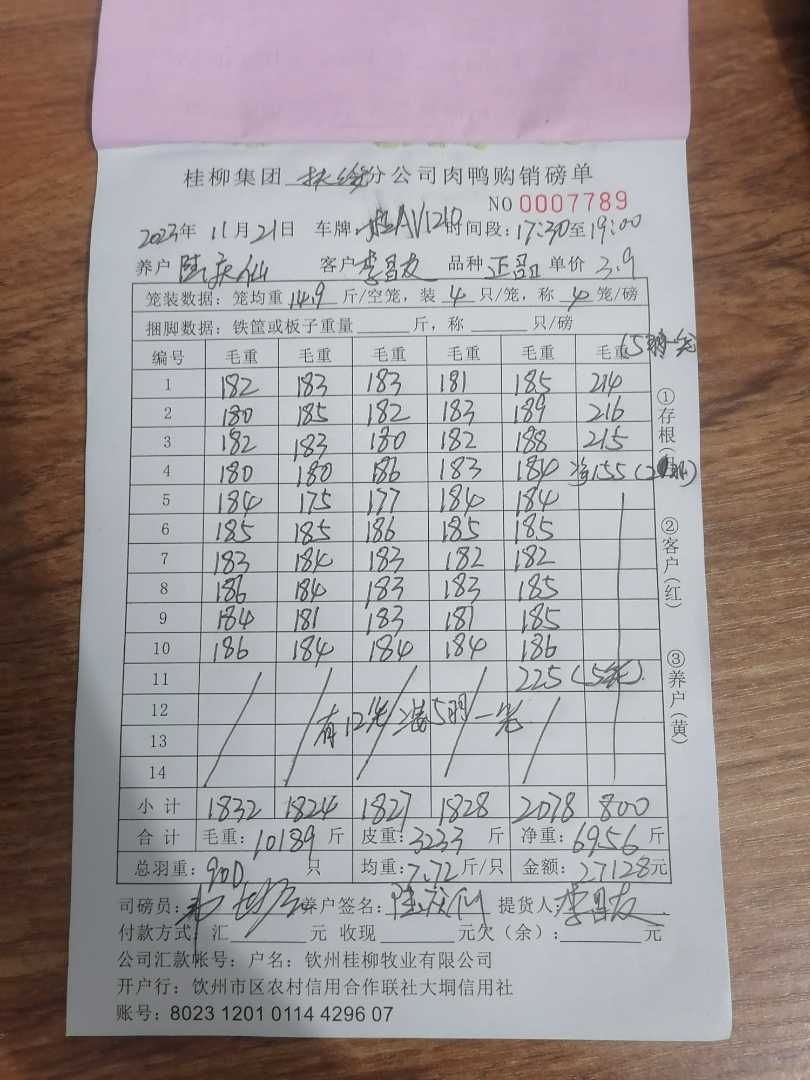 桂柳集团 扶绥 分公司肉鸭购销磅单
NO 0007789
2023年 11月21日 车牌 AV1210 时间段: 17:30至19:00
养户 陆庆仙 客户 李昌友 品种 正品 单价 3.9
笼装数据: 笼均重 14.9 斤/空笼, 装 4 只/笼, 称 4 笼/磅
捆脚数据: 铁筐或板子重量 斤, 称 只/磅
编号 毛重 毛重 毛重 毛重 毛重 毛重 (5羽一笼
1 182 183 183 181 185 214
2 180 185 182 183 189 216
3 182 183 180 182 188 215
4 180 180 186 183 184 净155
5 184 175 177 184 184
6 185 185 186 185 185
7 183 184 183 182 182
8 186 184 183 183 185
9 184 181 183 181 185
10 186 184 184 184 186
11 225 (5笼)
12 有12笼装5羽一笼
13
14
小计 1832 1824 1827 1828 2078 800
合计 毛重: 10189 斤 皮重: 3233 斤 净重: 6956 斤
总羽重: 900 只 均重: 7.72 斤/只 金额: 27128元
司磅员: 养户签名: 陆庆仙 提货人: 李昌友
付款方式: 汇 元 收现 元欠(余): 元
公司汇款帐号: 户名: 钦州桂柳牧业有限公司
开户行: 钦州市区农村信用合作联社大垌信用社
账号: 8023 1201 0114 4296 07
①存根
②客户(红)
③养户(黄)